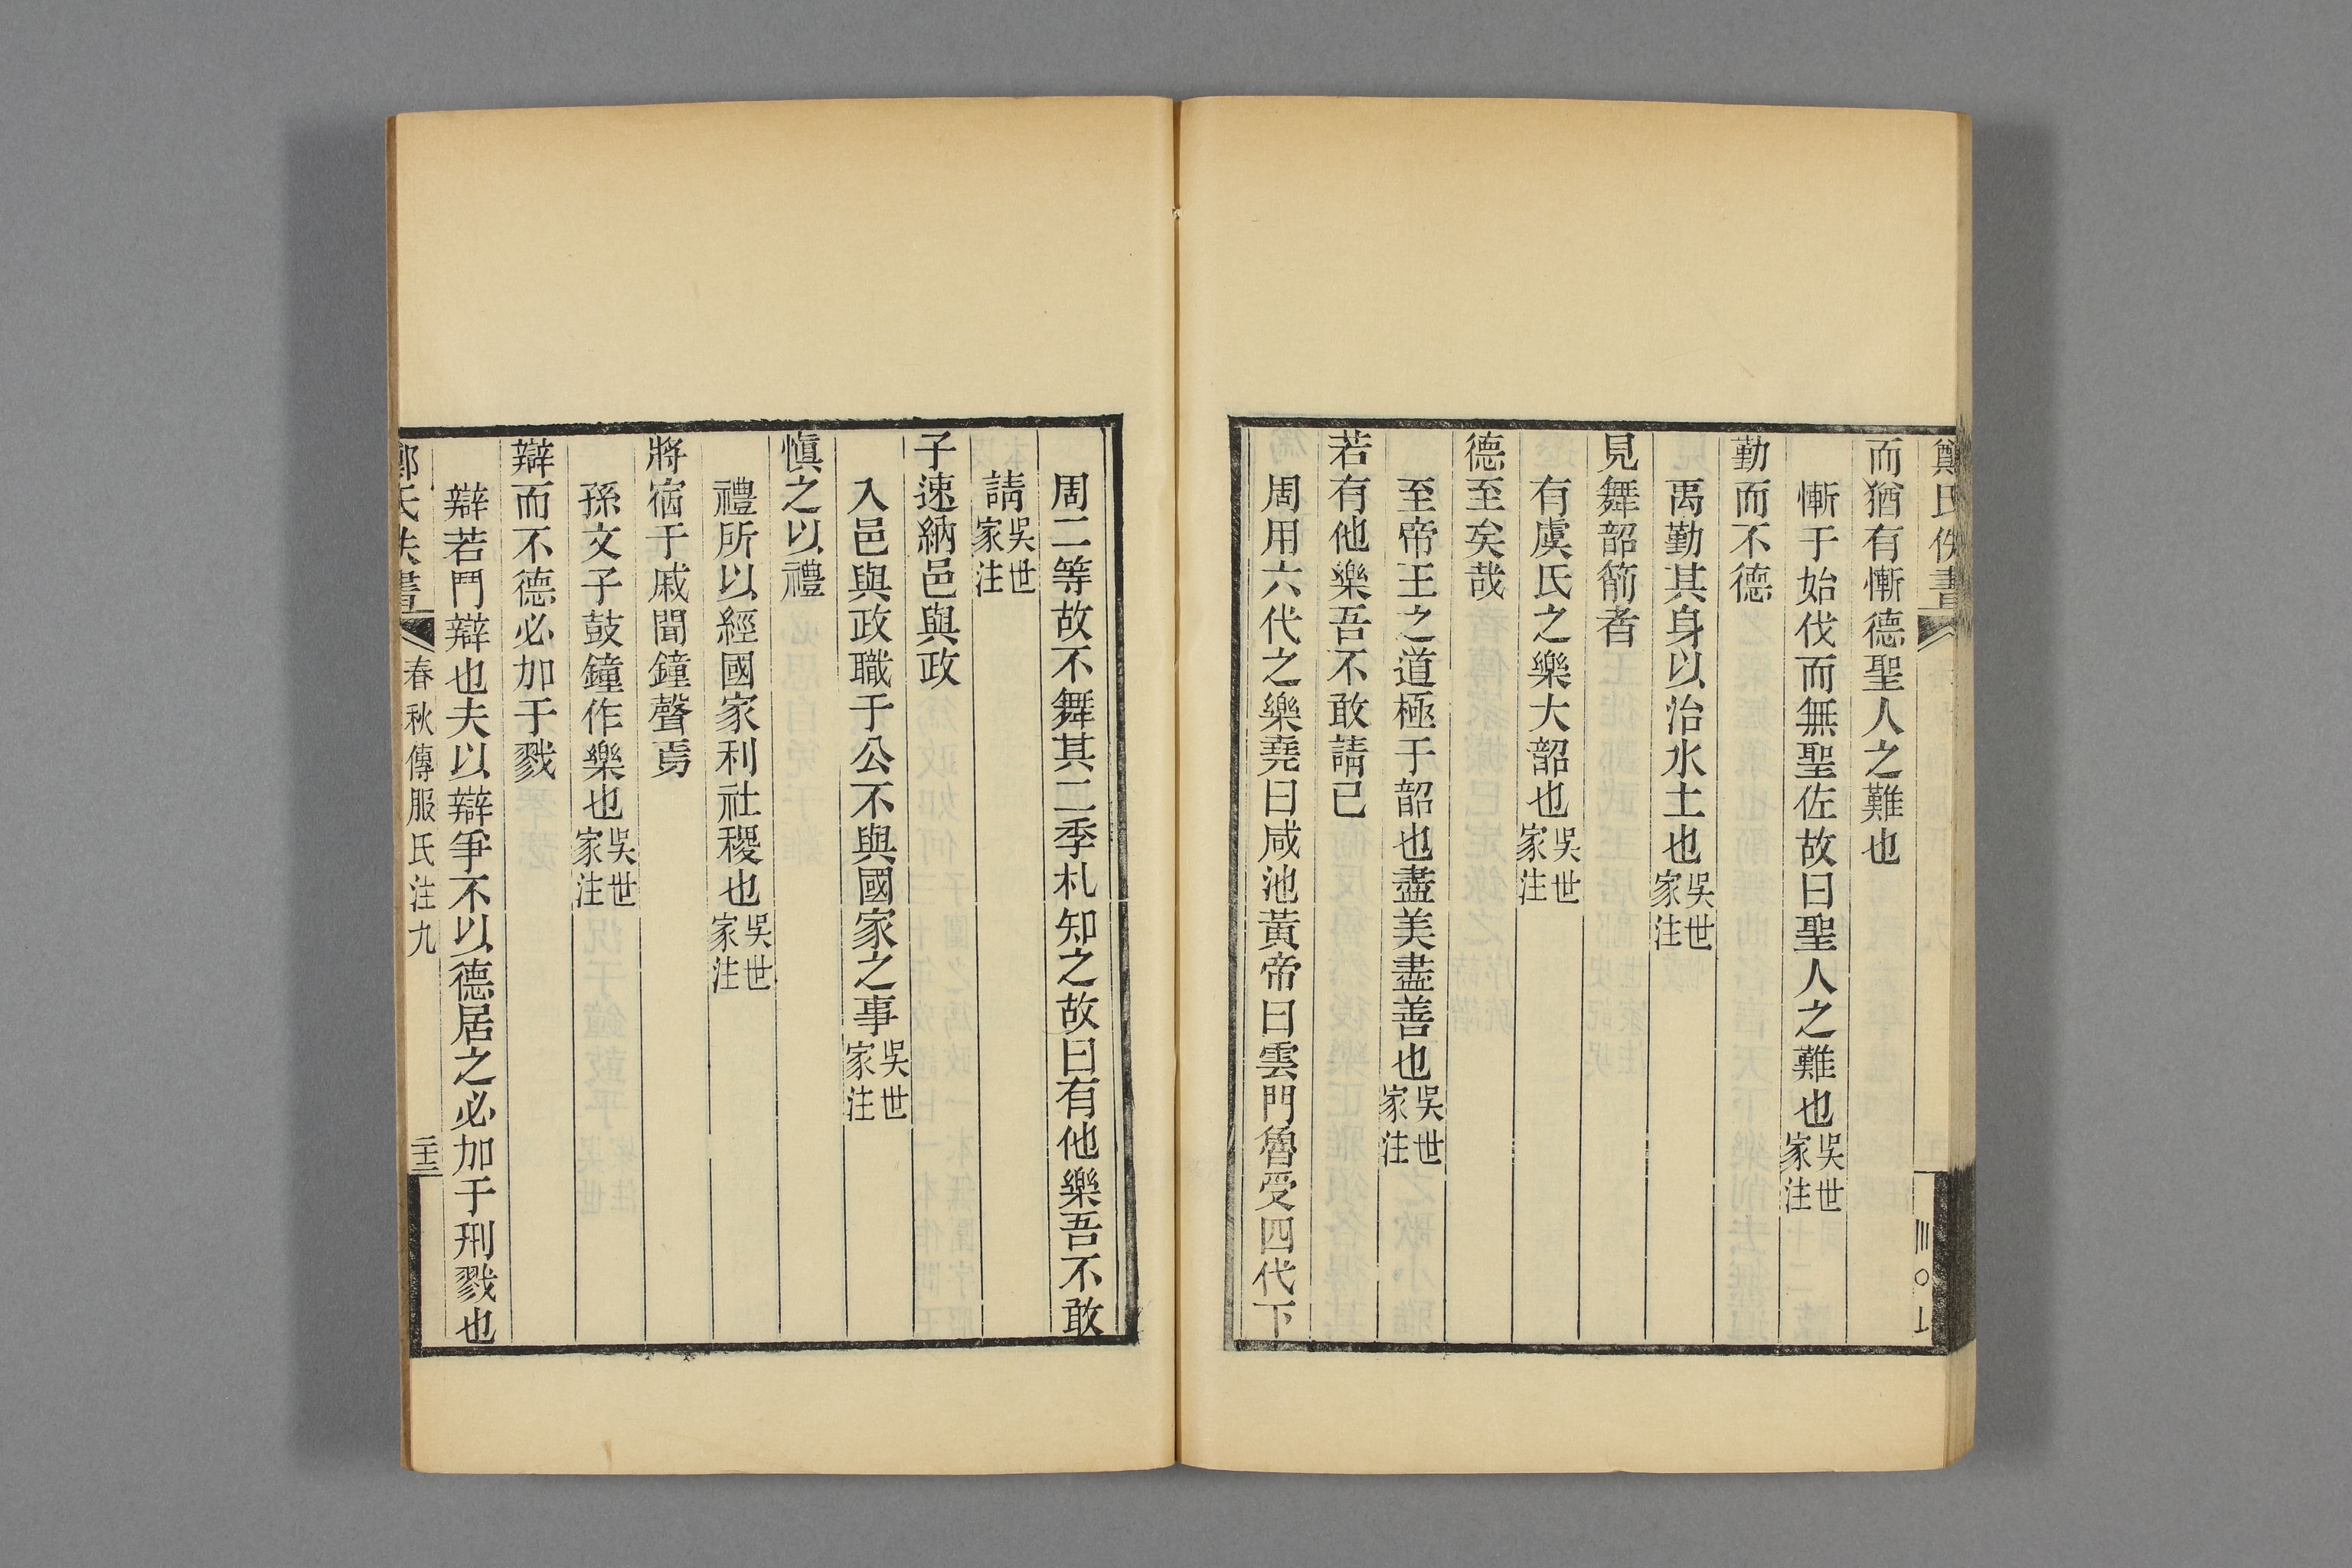 鄭氏佚書
三〇上
而猶有慚德聖人之難也
慚于始伐而無聖佐故曰聖人之難也吳世家注
勤而不德
禹勤其身以治水土也吳世家注
見舞韶箾者
有虞氏之樂大韶也吳世家注
德至矣哉
至帝王之道極于韶也盡美盡善也吳世家注
若有他樂吾不敢請已
周用六代之樂堯曰咸池黃帝曰雲門魯受四代下
周二等故不舞其二季札知之故曰有他樂吾不敢
請吳世家注
子速納邑與政
入邑與政職于公不與國家之事吳世家注
愼之以禮
禮所以經國家利社稷也吳世家注
將宿于戚聞鐘聲焉
孫文子鼓鐘作樂也吳世家注
辯而不德必加于戮
辯若鬥辯也夫以辯爭不以德居之必加于刑戮也
鄭氏佚書 春秋傳服氏注九 二十三